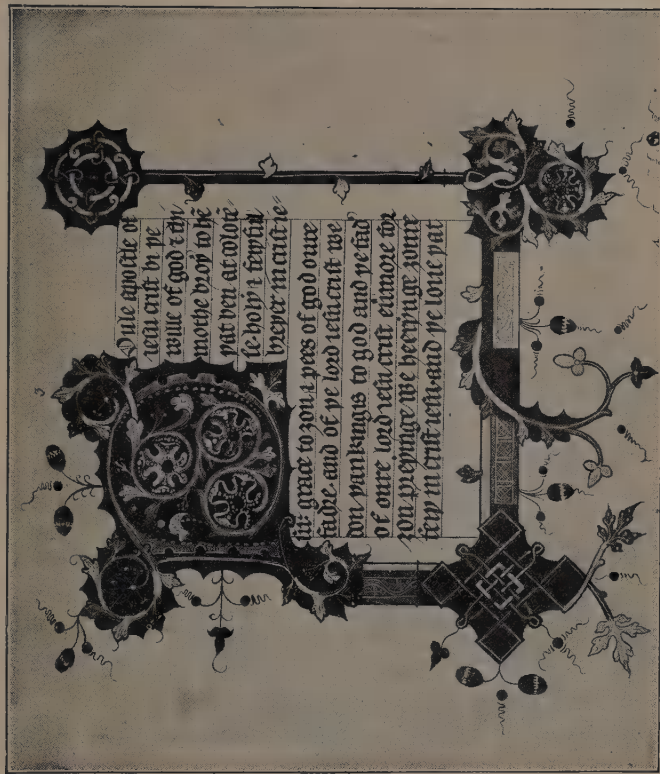 Oule apostle of
iesu crist bi þe
wille of god ⁊ thi
mothe broþ to hē
þat ben at colose
se holy ⁊ feyþful
breþer in crist ie
su: grace to ȝou ⁊ pees of god oure
fadre and of þe lord iesu crist we
don þankingis to god and þe fad
of oure lord iesu crist euermore for
ȝou preyinge we heerynge ȝoure
feyþ in crist iesu. and þe loue þat